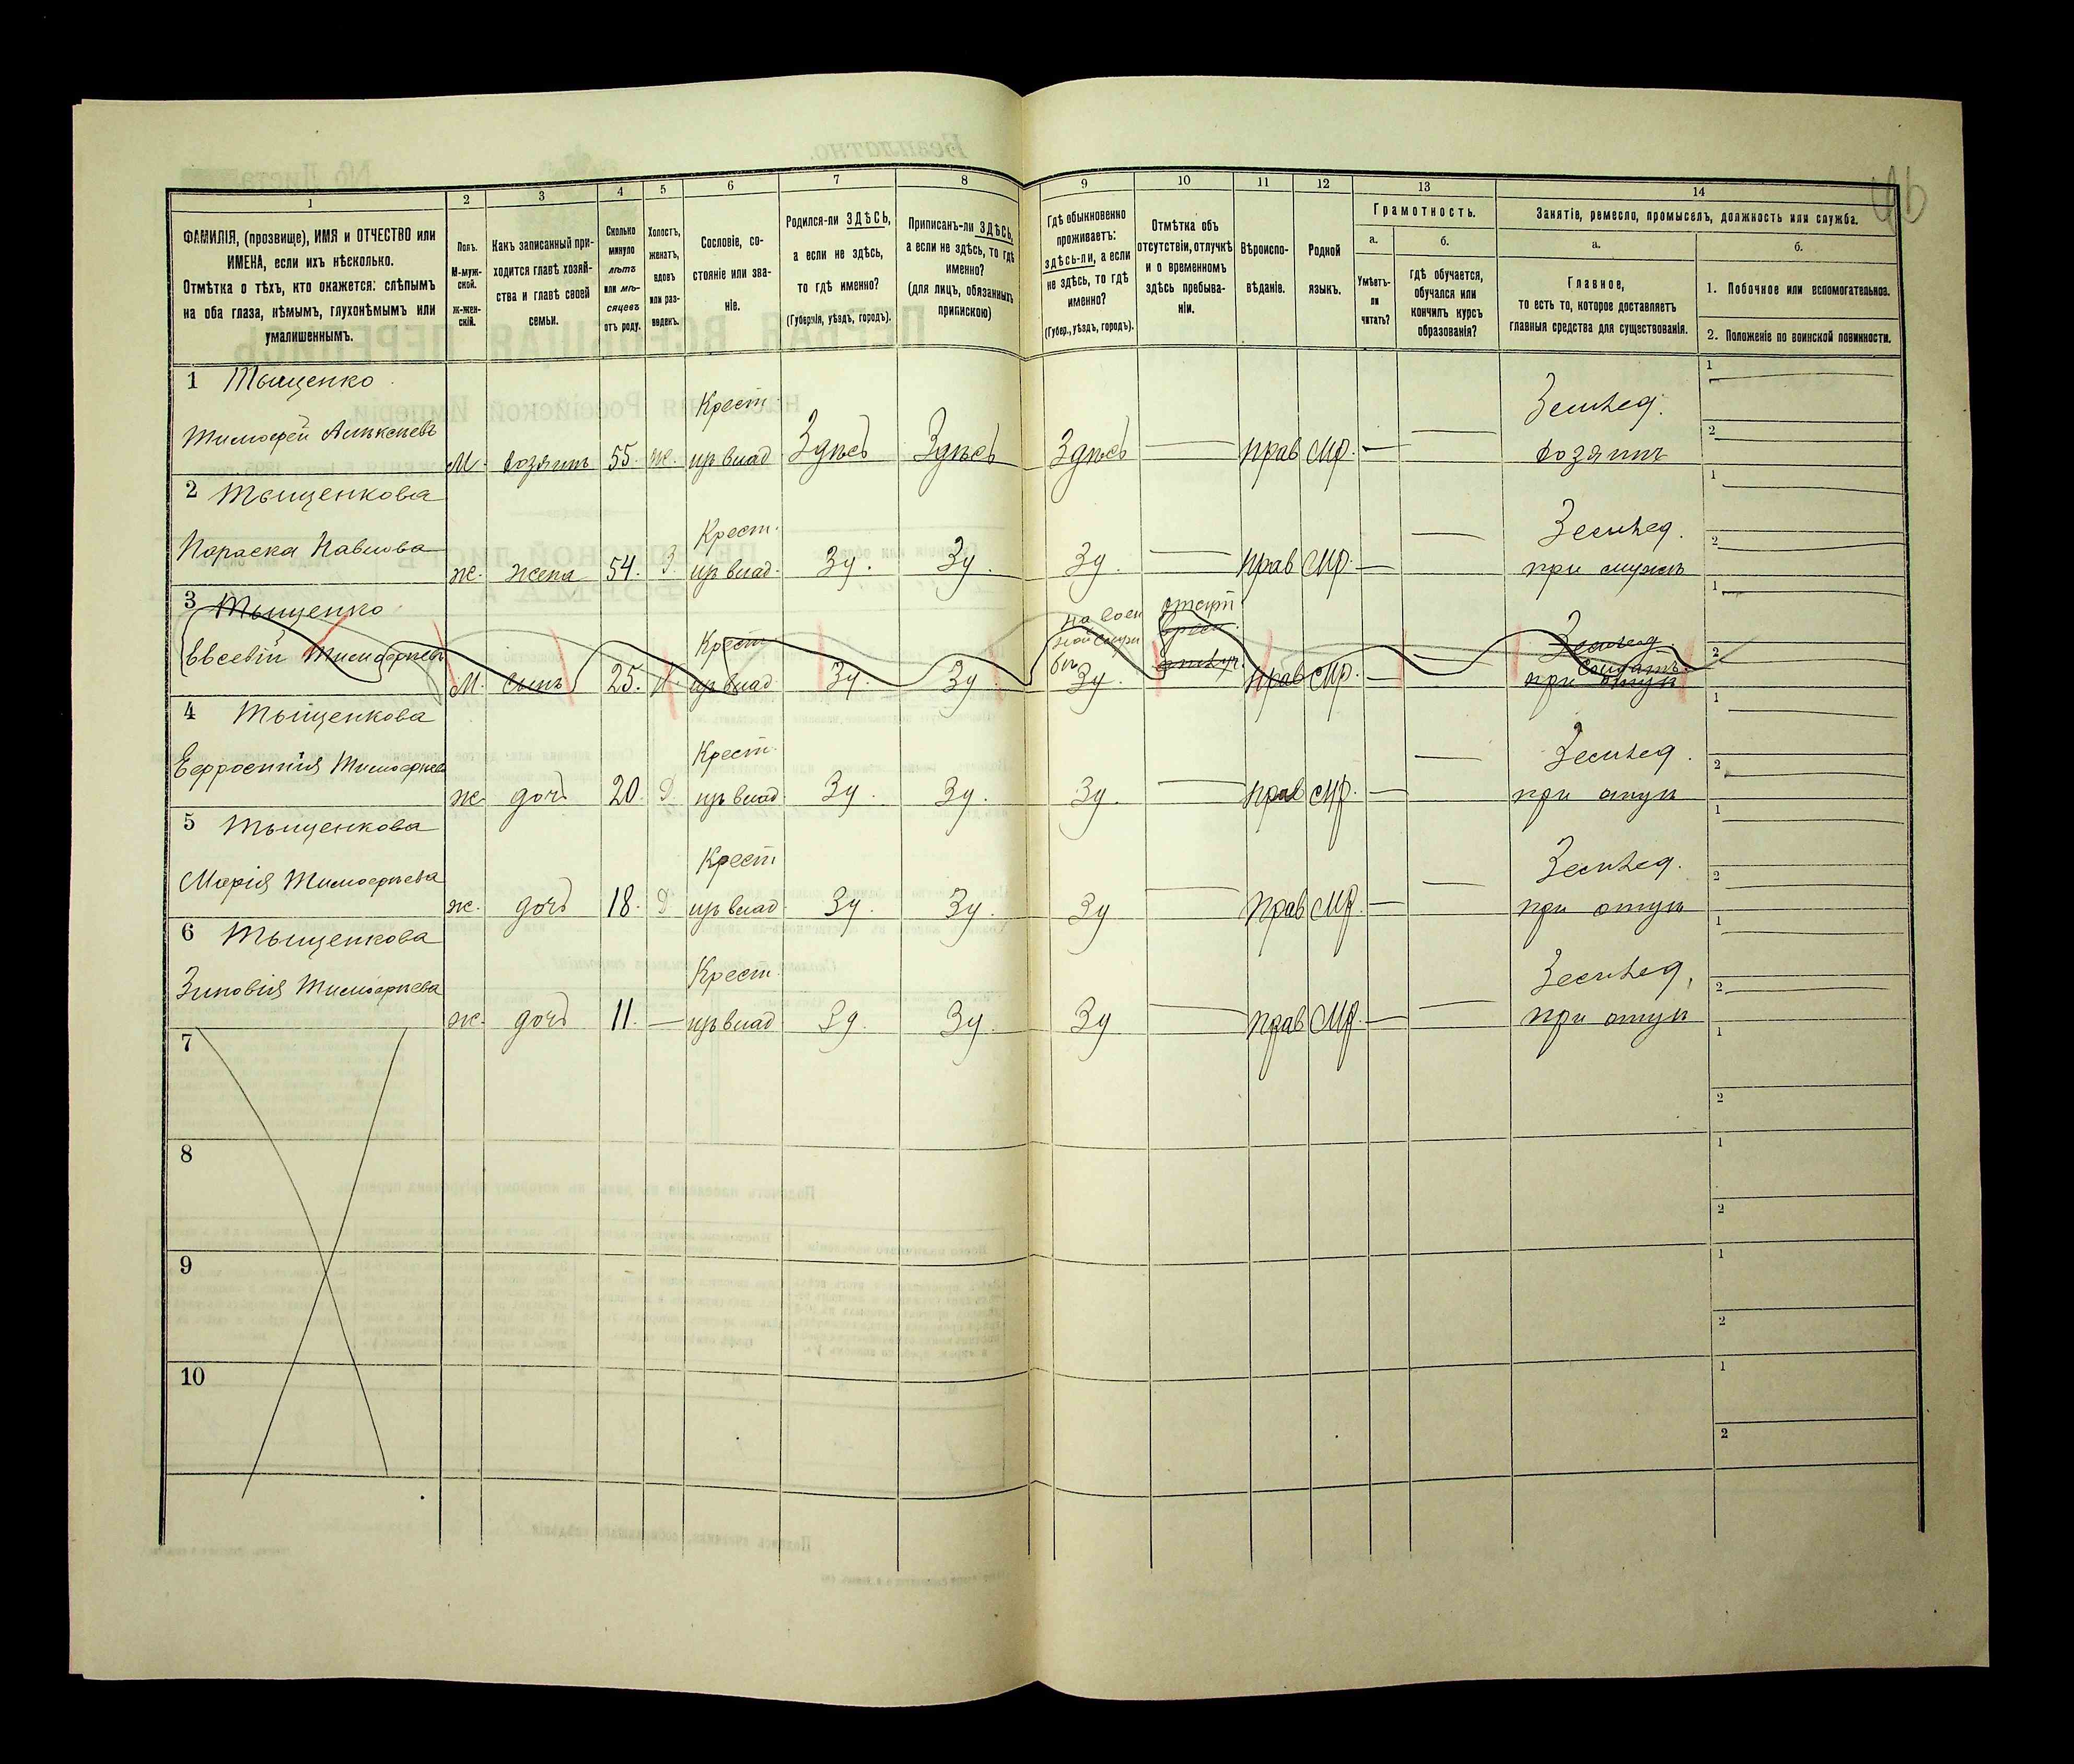 1 2 3 4 5 6 7 8 9 10 11 12 13 14
ФАМИЛІЯ, (прозвище), ИМЯ и ОТЧЕСТВО или
ИМЕНА, если ихъ нѣсколько.
Отмѣтка о тѣхъ, кто окажется: слѣпымъ
на оба глаза, нѣмымъ, глухонѣмымъ или
умалишеннымъ.
Полъ.
М-муж-
ской.
Ж-жен-
скій.
Какъ записанный при-
ходится главѣ хозяй-
ства и главѣ своей
семьи.
Сколько
минуло
лѣтъ
или мѣ-
сяцевъ
отъ роду.
Холостъ,
женатъ,
вдовъ
или раз-
веденъ.
Сословіе, со-
стояніе или зва-
ніе.
Родился-ли ЗДѢСЬ,
а если не здѣсь,
то гдѣ именно?
(Губернія, уѣздъ, городъ).
Приписанъ-ли ЗДѢСЬ,
а если не здѣсь, то гдѣ
именно?
(для лицъ, обязанныхъ
припискою)
Гдѣ обыкновенно
проживаетъ:
здѣсь-ли, а если
не здѣсь, то гдѣ
именно?
(Губер., уѣздъ, городъ).
Отмѣтка объ
отсутствіи, отлучкѣ
и о временномъ
здѣсь пребыва-
ніи.
Вѣроиспо-
вѣданіе.
Родной
языкъ.
Грамотность.
а.
Умѣетъ-
ли
читать?
б.
гдѣ обучается,
обучался или
кончилъ курсъ
образованія?
Занятіе, ремесло, промыселъ, должность или служба.
а.
Главное,
то есть то, которое доставляетъ
главныя средства для существованія.
б.
1. Побочное или вспомогательное.
2. Положеніе по воинской повинности.
1 Тыщенко Крест. Землед. 1
Тимофей Алексѣевъ М. хозяинъ 55. ж. цр влад Здѣсь Здѣсь Здѣсь — прав мр. — — хозяинъ 2
2 Тыщенкова Крест. Землед. 1
Параска Павлова ж. жена 54. З. цр влад. Зд. Зд. Зд. — прав мр. — — при мужѣ 2
3 Тыщенко Крест. на воен отсут Землед 1
ной служ врем. Солдатъ.
бѣ отлуч.
Евсевій Тимофеевъ М. сынъ 25. цр влад Зд. Зд. Зд. прав мр. — — при отцѣ 2
4 Тыщенкова Крест. Землед. 1
Ефросинія Тимофеева ж дочь 20. Д цр влад. Зд. Зд. Зд. — прав мр. — — при отцѣ 2
5 Тыщенкова Крест Землед. 1
Марія Тимофеева ж. дочь 18. Д цр влад. Зд. Зд. Зд — прав мр. — — при отцѣ 2
6 Тыщенкова Крест. Землед. 1
Зиновія Тимофеева ж. дочь 11. — цр влад Зд. Зд. Зд — прав мр. — — при отцѣ 2
7 1
2
8 1
2
9 1
2
10 1
2